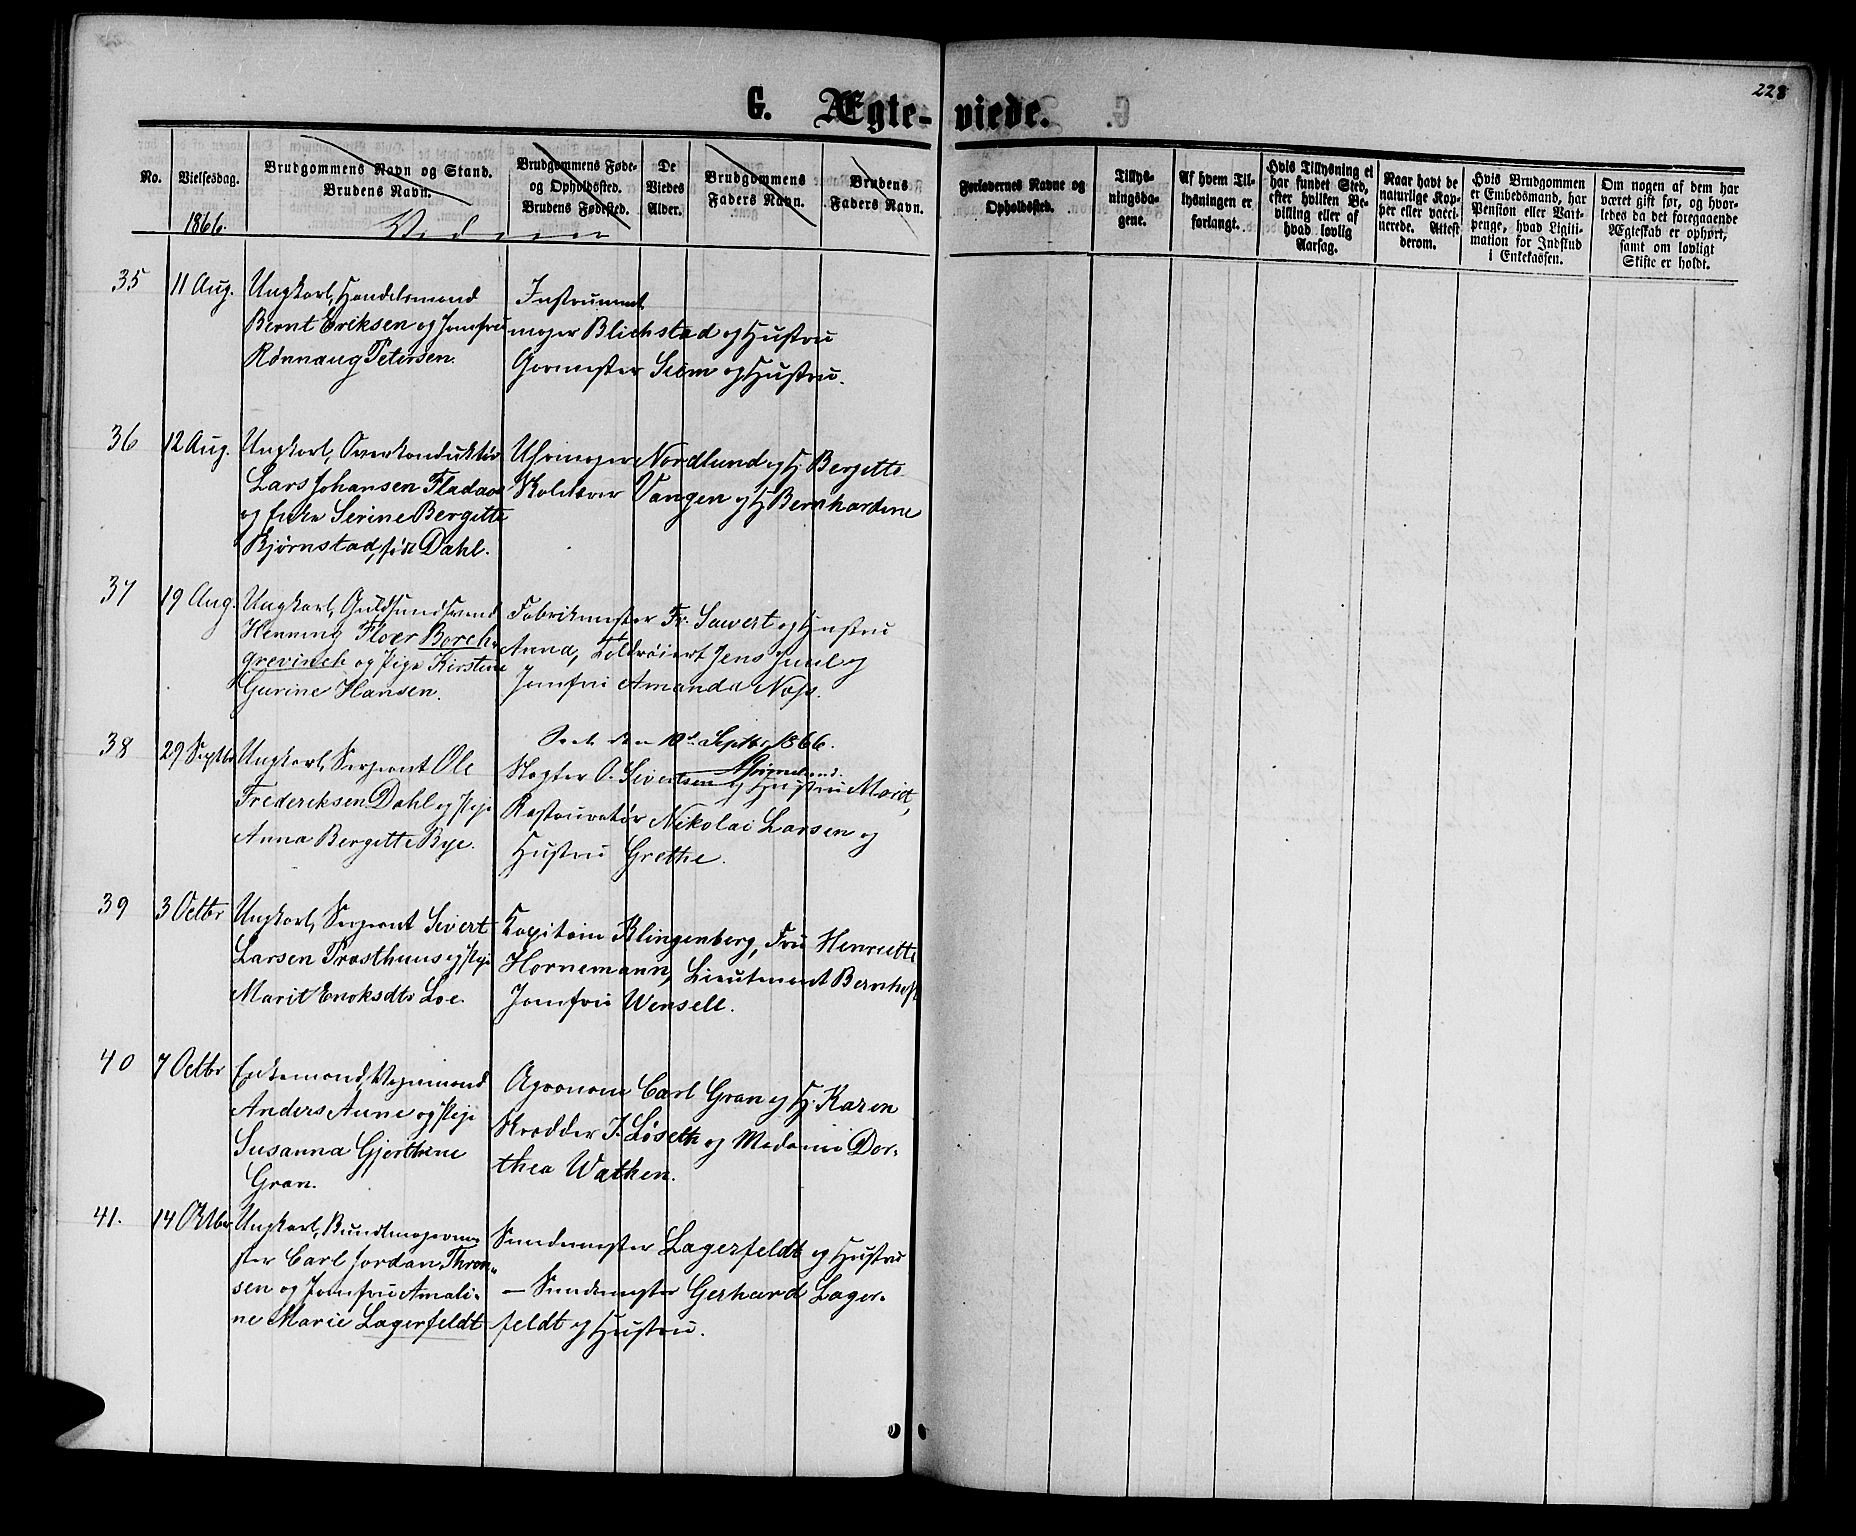 228
G. Ægte-viede.
No.
Vielsesdag.
1866.
Brudgommens Navn og Stand.
Brudens Navn.
Brudgommens Føde-
og Opholdssted.
Brudens Fødested.
De
Viedes
Alder.
Brudgommens
Faders Navn.
Brudens
Faders Navn.
Forlovernes Navne og
Opholdssted.
Tillys-
ningsda-
gene.
Af hvem Til-
lysningen er
forlangt.
Hvis Tillysning ei
har fundet Sted,
efter hvilken Be-
villing eller af
hvad lovlig
Aarsag.
Naar havt de
naturlige Kop-
per eller vacci-
nerede. Attest
derom.
Hvis Brudgommen
er Embedsmand, har
Pension eller Vart-
penge, hvad Ligiti-
mation for Indskud
i Enkekassen.
Om nogen af dem har
været gift før, og hvor-
ledes da det foregaaende
Ægteskab er ophørt,
samt om lovligt
Skifte er holdt.
35
11 Aug.
Ungkarl, Handelsmand
Bernt Eriksen og Jomfru
Rønnaug Petersen.
Instrument
mager Blichstad og Hustru
Garmester Siem og Hustru.
36
12 Aug.
Ungkarl, Overkonduktør
Lars Johansen Fladaas
og Enke Serine Bergitte
Bjørnstad, fød Dahl.
Uhrmager Nordlund og H. Bergitte
Vangen og H Bernhardine
37
19 Aug.
Ungkarl, Guldsmedsvend
Henning Floer Borch-
grevinck og Pige Kirstine
Gurine Hansen.
Fabrikmester Fr. Sawert og Hustru
Anna, Toldrøiert Jens Juul og
Jomfru Amanda Næss.
38
29 Septbr
Ungkarl, Sergeant Ole
Frederiksen Dahl og Pige
Anna Bergitte Bye.
den 10de Septbr 1866.
Slagter O. Sivertsen og Hustru Marit,
Restauratør Nikolai Larsen og
Hustru Grethe.
39
3 Octbr
Ungkarl, Sergeant Sivert
Larsen Prasthuus og Pige
Marit Enoksdtr Loe.
Kapitain Klingenberg, Fru Henriette
Hornemann, Lieutenant Bernhoft
Jomfru Wensell.
40
7 Octbr
Enkemand, Vognmand
Anders Aune og Pige
Susanna Gjertine
Gran.
Agronom Carl Gran og H. Karen
Skrædder J. Løseth og Madame Dor-
thea Wathen.
41.
14 Oktbr
Ungkarl, Bundtmagerme-
ster Carl Jordan Thron-
sen og Jomfru Amali-
ne Marie Lagerfeldt
Smedemester Lagerfeldt og Hustru
— Smedemester Gerhard Lager-
feldt og Hustru.